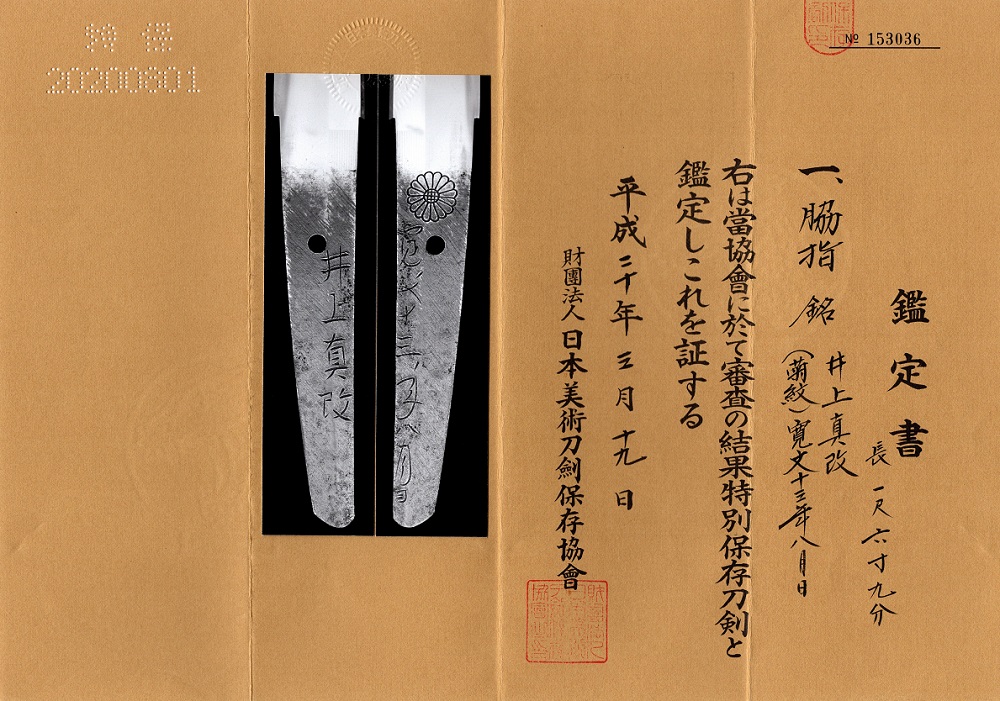 № 153036
鑑定書
一、脇指 銘
長 一尺六寸九分
井上真改
(菊紋)寛文十三年八月日
右は當協會に於て審査の結果特別保存刀剣と
鑑定しこれを証する
平成二十年三月十九日
財團法人 日本美術刀劍保存協會
寛文十三年八月日
井上真改
特保
20200801